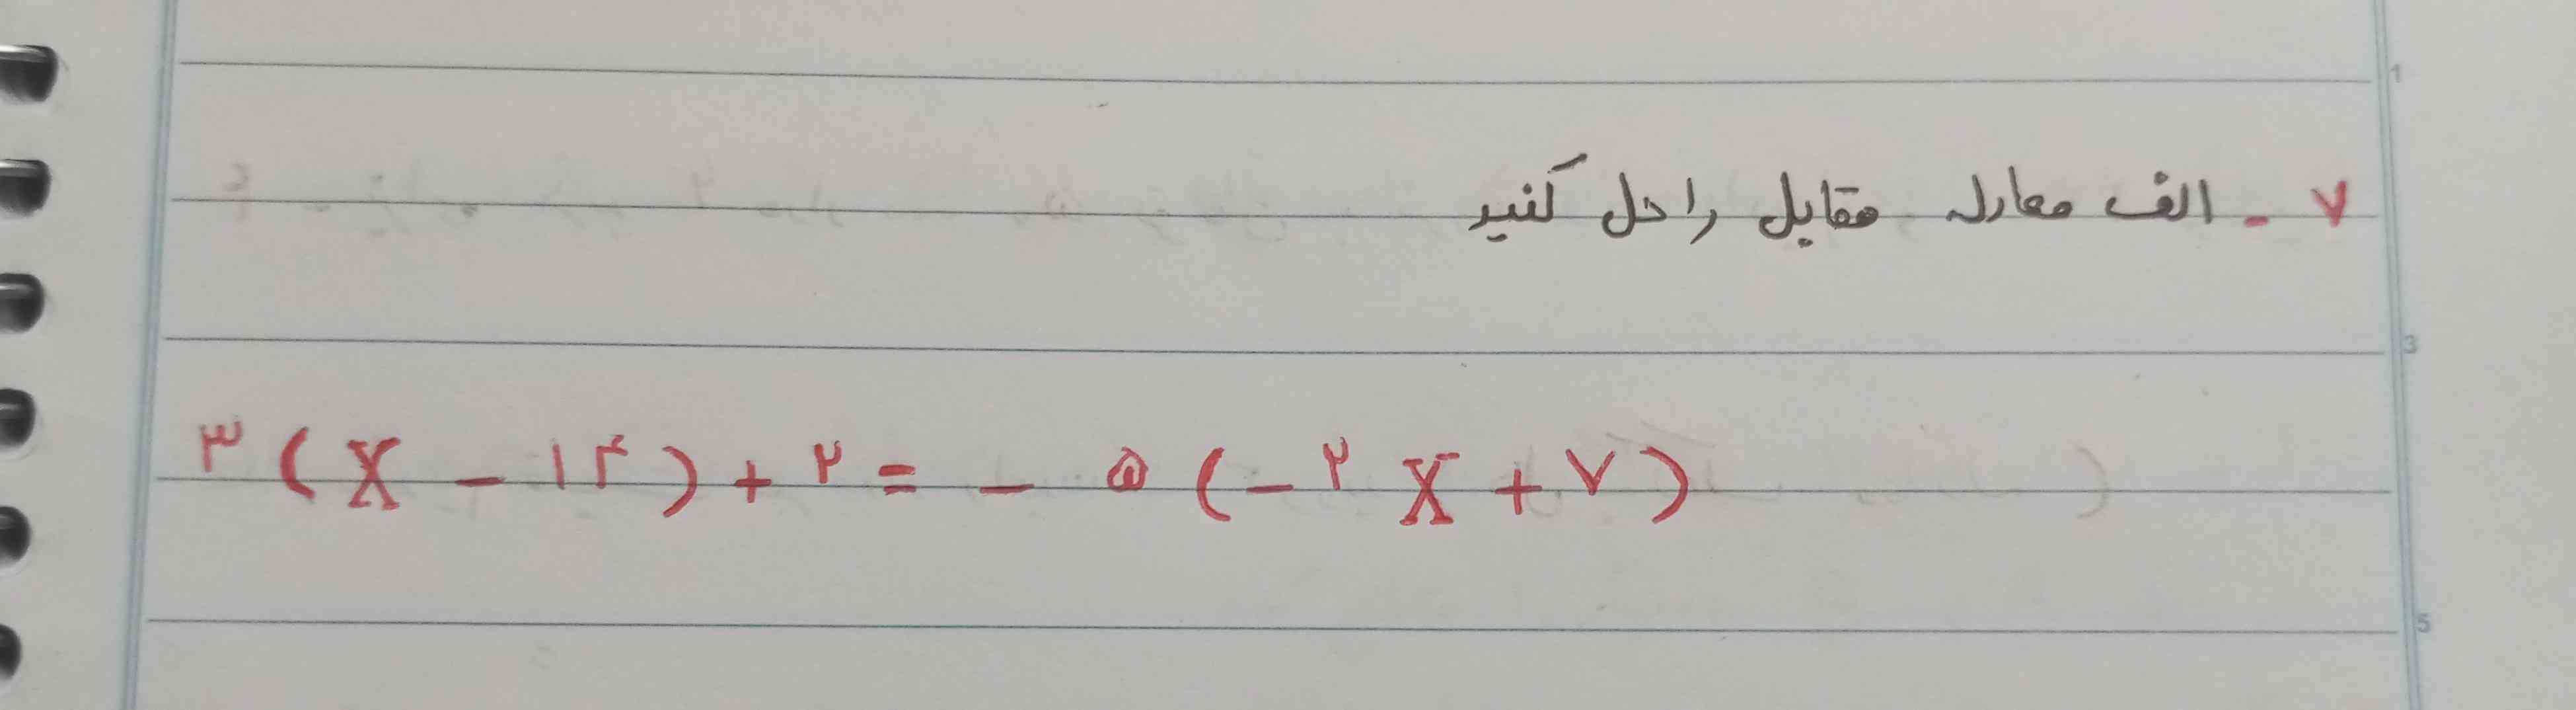 ۷ - الف معادله مقابل را حل کنید
۳ (X - ۱۴) + ۲ = - ۵ (-۲ X + ۷)
1
3
5